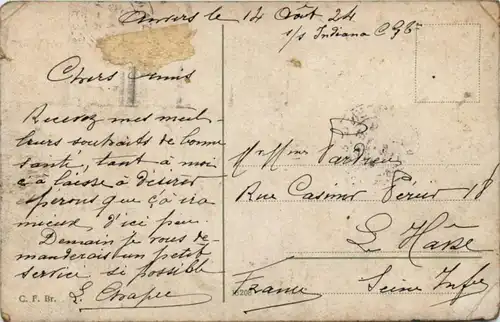 Anvers le 14 Août 24
s/s Indiana C G T
Chers amis
Recevez mes meil-
leurs souhaits de bonne
santé, tant à moi
à laisse à désirer
esperons que ça ira
mieux d'ici peu.
Demain je vous de-
manderais un petit
service si possible
E. Chapel
Mr & Mme Tardieu
Rue Casimir Périer 18
Le Havre
Seine Infre
France
C. F. Br.